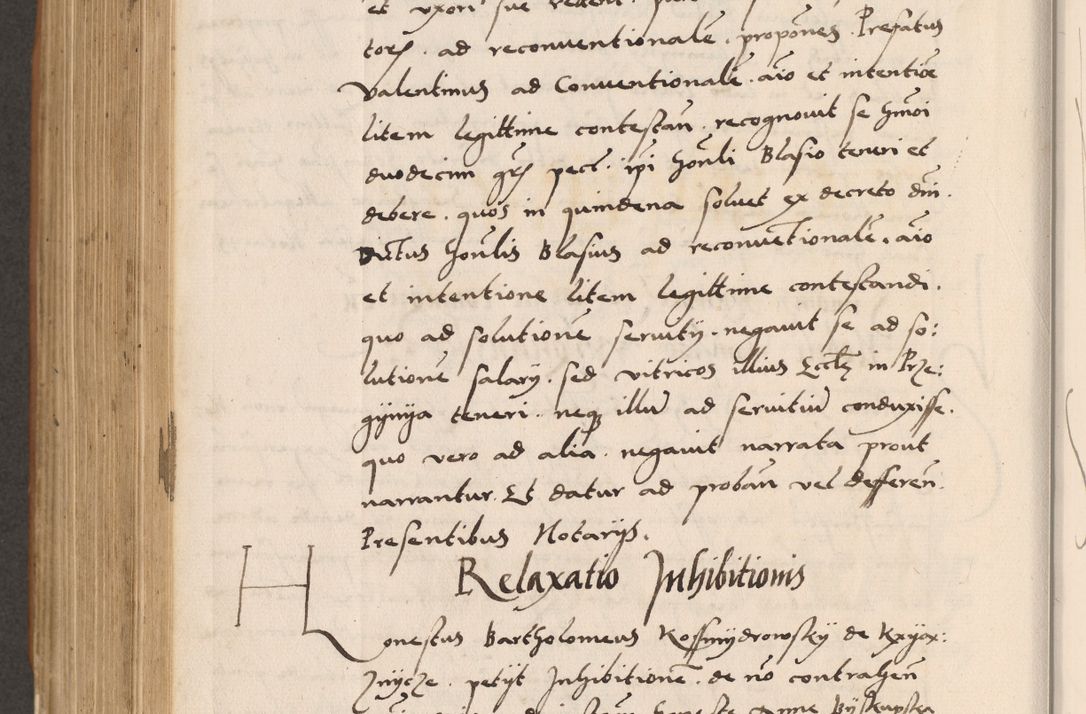 et vxori sue
torẽ. ad reconuentionalẽ. propones. Prefatus
Valentinus ad Conuentionalẽ. aĩo et intentiõe
litem legittime contestañ. recognouit se hmõi
duodecim grẽ pecẽ. ipi honẽli Blasio teneri et
debere. quos in quindena soluet ex decreto dñi.
Dictus honẽlis Blasius ad reconuẽtionalẽ. aĩo
et intentione litem legittime contestandi.
quo ad solutionẽ seruitij. negauit se ad so:
lutionẽ salarij. sed vitricos illius Eccliẽ in Prze:
gynya teneri. neq illũ ad seruitiũ conduxisse.
quo vero ad alia. negauit narrata prout
narrantur. Et datur ad probañ vel differeñ.
Presentibus Notarijs.
Relaxatio Inhibitionis
Honestus Bartholomeus Kossmydrowsky de Krzyax:
petijt Inhibitionẽ. de nõ contraheñ